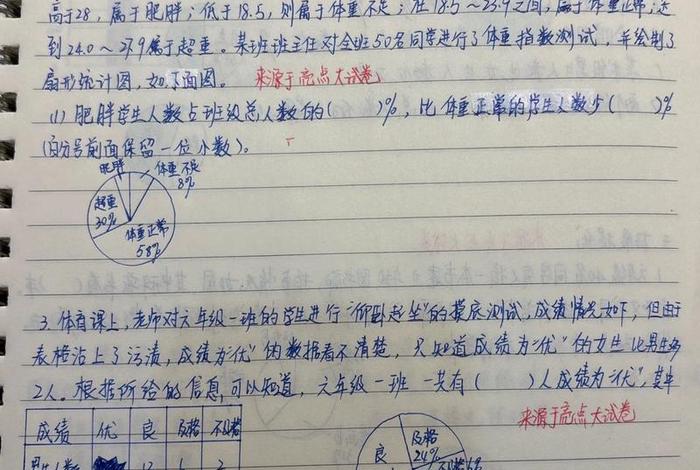 高于28,属于肥胖;低于18.5,则属于体重不足;在18.5~23.9之间,属于体重正常;达
到24.0~27.9属于超重。某班班主任对全班50名同学进行了体重指数测试,并绘制了
扇形统计图,如下面图。 来源于亮点大试卷
(1) 肥胖学生人数占班级总人数的( )%,比体重正常的学生人数少( )%
(百分号前面保留一位小数)。
肥胖 体重不足
8%
超重
30%
体重正常
58%
3. 体育课上,老师对六年级一班的学生进行“仰卧起坐”的摸底测试,成绩情况如下,但由于
表格沾上了污渍,成绩为“优”的数据看不清楚,只知道成绩为“优”的女生比男生多
2人。根据所给的信息可以知道,六年级一班一共有( )人成绩为“优”,其中
来源于亮点大试卷
成绩 优 良 及格 不及格
良 及格
24%